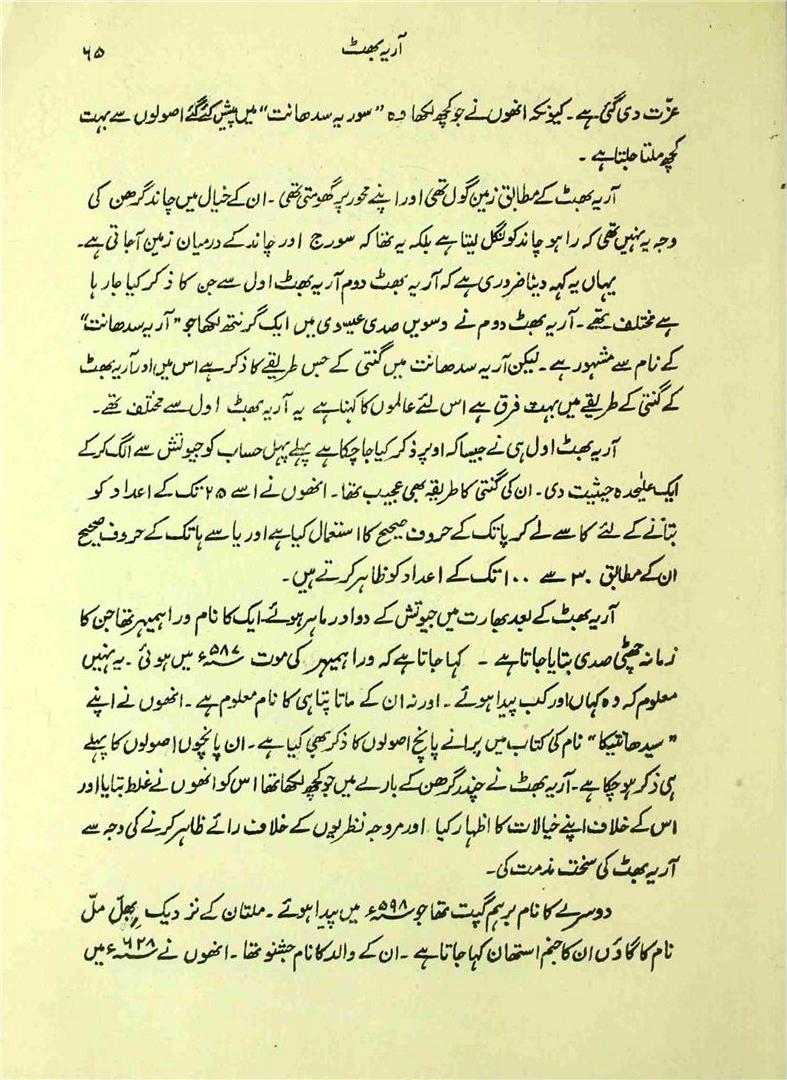 آریہ بھٹ ۶۵
عزّت دی گئی ہے۔ کیونکہ انھوں نے جو کچھ لکھا وہ "سوریہ سدھانت" میں پیش کئے گئے اصولوں سے بہت
کچھ ملتا جلتا ہے۔
آریہ بھٹ کے مطابق زمین گول تھی اور اپنے محور پر گھومتی تھی۔ ان کے خیال میں چاند گرھن کی
وجہ یہ نہیں تھی کہ راہو چاند کو نگل لیتا ہے بلکہ یہ تھا کہ سورج اور چاند کے درمیان زمین آجاتی ہے۔
یہاں یہ کہہ دینا ضروری ہے کہ آریہ بھٹ دوم آریہ بھٹ اول سے جن کا ذکر کیا جا رہا
ہے مختلف تھے۔ آریہ بھٹ دوم نے دسویں صدی عیسوی میں ایک گرنتھ لکھا جو "آریہ سدھانت"
کے نام سے مشہور ہے۔ لیکن آریہ سدھانت میں گنتی کے جس طریقے کا ذکر ہے اس میں اور آریہ بھٹ
کے گنتی کے طریقے میں بہت فرق ہے اس لئے عالموں کا کہنا ہے یہ آریہ بھٹ اول سے مختلف تھے۔
آریہ بھٹ اول ہی نے جیسا کہ اوپر ذکر کیا جا چکا ہے پہلے پہل حساب کو جیوتش سے الگ کر کے
ایک علیٰحدہ حیثیت دی۔ ان کی گنتی کا طریقہ بھی عجیب تھا۔ انھوں نے اسے ۲۵ تک کے اعداد کو
بتانے کے لئے کا سے لے کر پا تک کے حروف صحیح کا استعمال کیا ہے اور یا سے ہا تک کے حروف صحیح
ان کے مطابق ۳۰ سے ۱۰۰ تک کے اعداد کو ظاہر کرتے ہیں۔
آریہ بھٹ کے بعد بھارت میں جیوتش کے دو اور ماہر ہوئے۔ ایک کا نام وراہمیہر تھا جن کا
زمانہ چھٹی صدی بتایا جاتا ہے۔ کہا جاتا ہے کہ وراہمیہر کی موت ۵۸۷ء میں ہوئی۔ یہ نہیں
معلوم کہ وہ کہاں اور کب پیدا ہوئے۔ اور نہ ان کے ماتا پتا ہی کا نام معلوم ہے۔ انھوں نے اپنے
"سیدھانتیکا" نام کی کتاب میں پرانے پانچ اصولوں کا ذکر بھی کیا ہے۔ ان پانچوں اصولوں کا پہلے
ہی ذکر ہو چکا ہے۔ آریہ بھٹ نے چندر گرھن کے بارے میں جو کچھ لکھا تھا اس کو انھوں نے غلط بتایا اور
اس کے خلاف اپنے خیالات کا اظہار کیا اور مروجہ نظریوں کے خلاف رائے ظاہر کرنے کی وجہ سے
آریہ بھٹ کی سخت مذمت کی۔
دوسرے کا نام برہم گپت تھا جو ۵۹۸ء میں پیدا ہوئے۔ ملتان کے نزدیک بھلّ ملّ
نام کا گاؤں ان کا جنم استھان کہا جاتا ہے۔ ان کے والد کا نام جشنو تھا۔ انھوں نے ۶۲۸ء میں